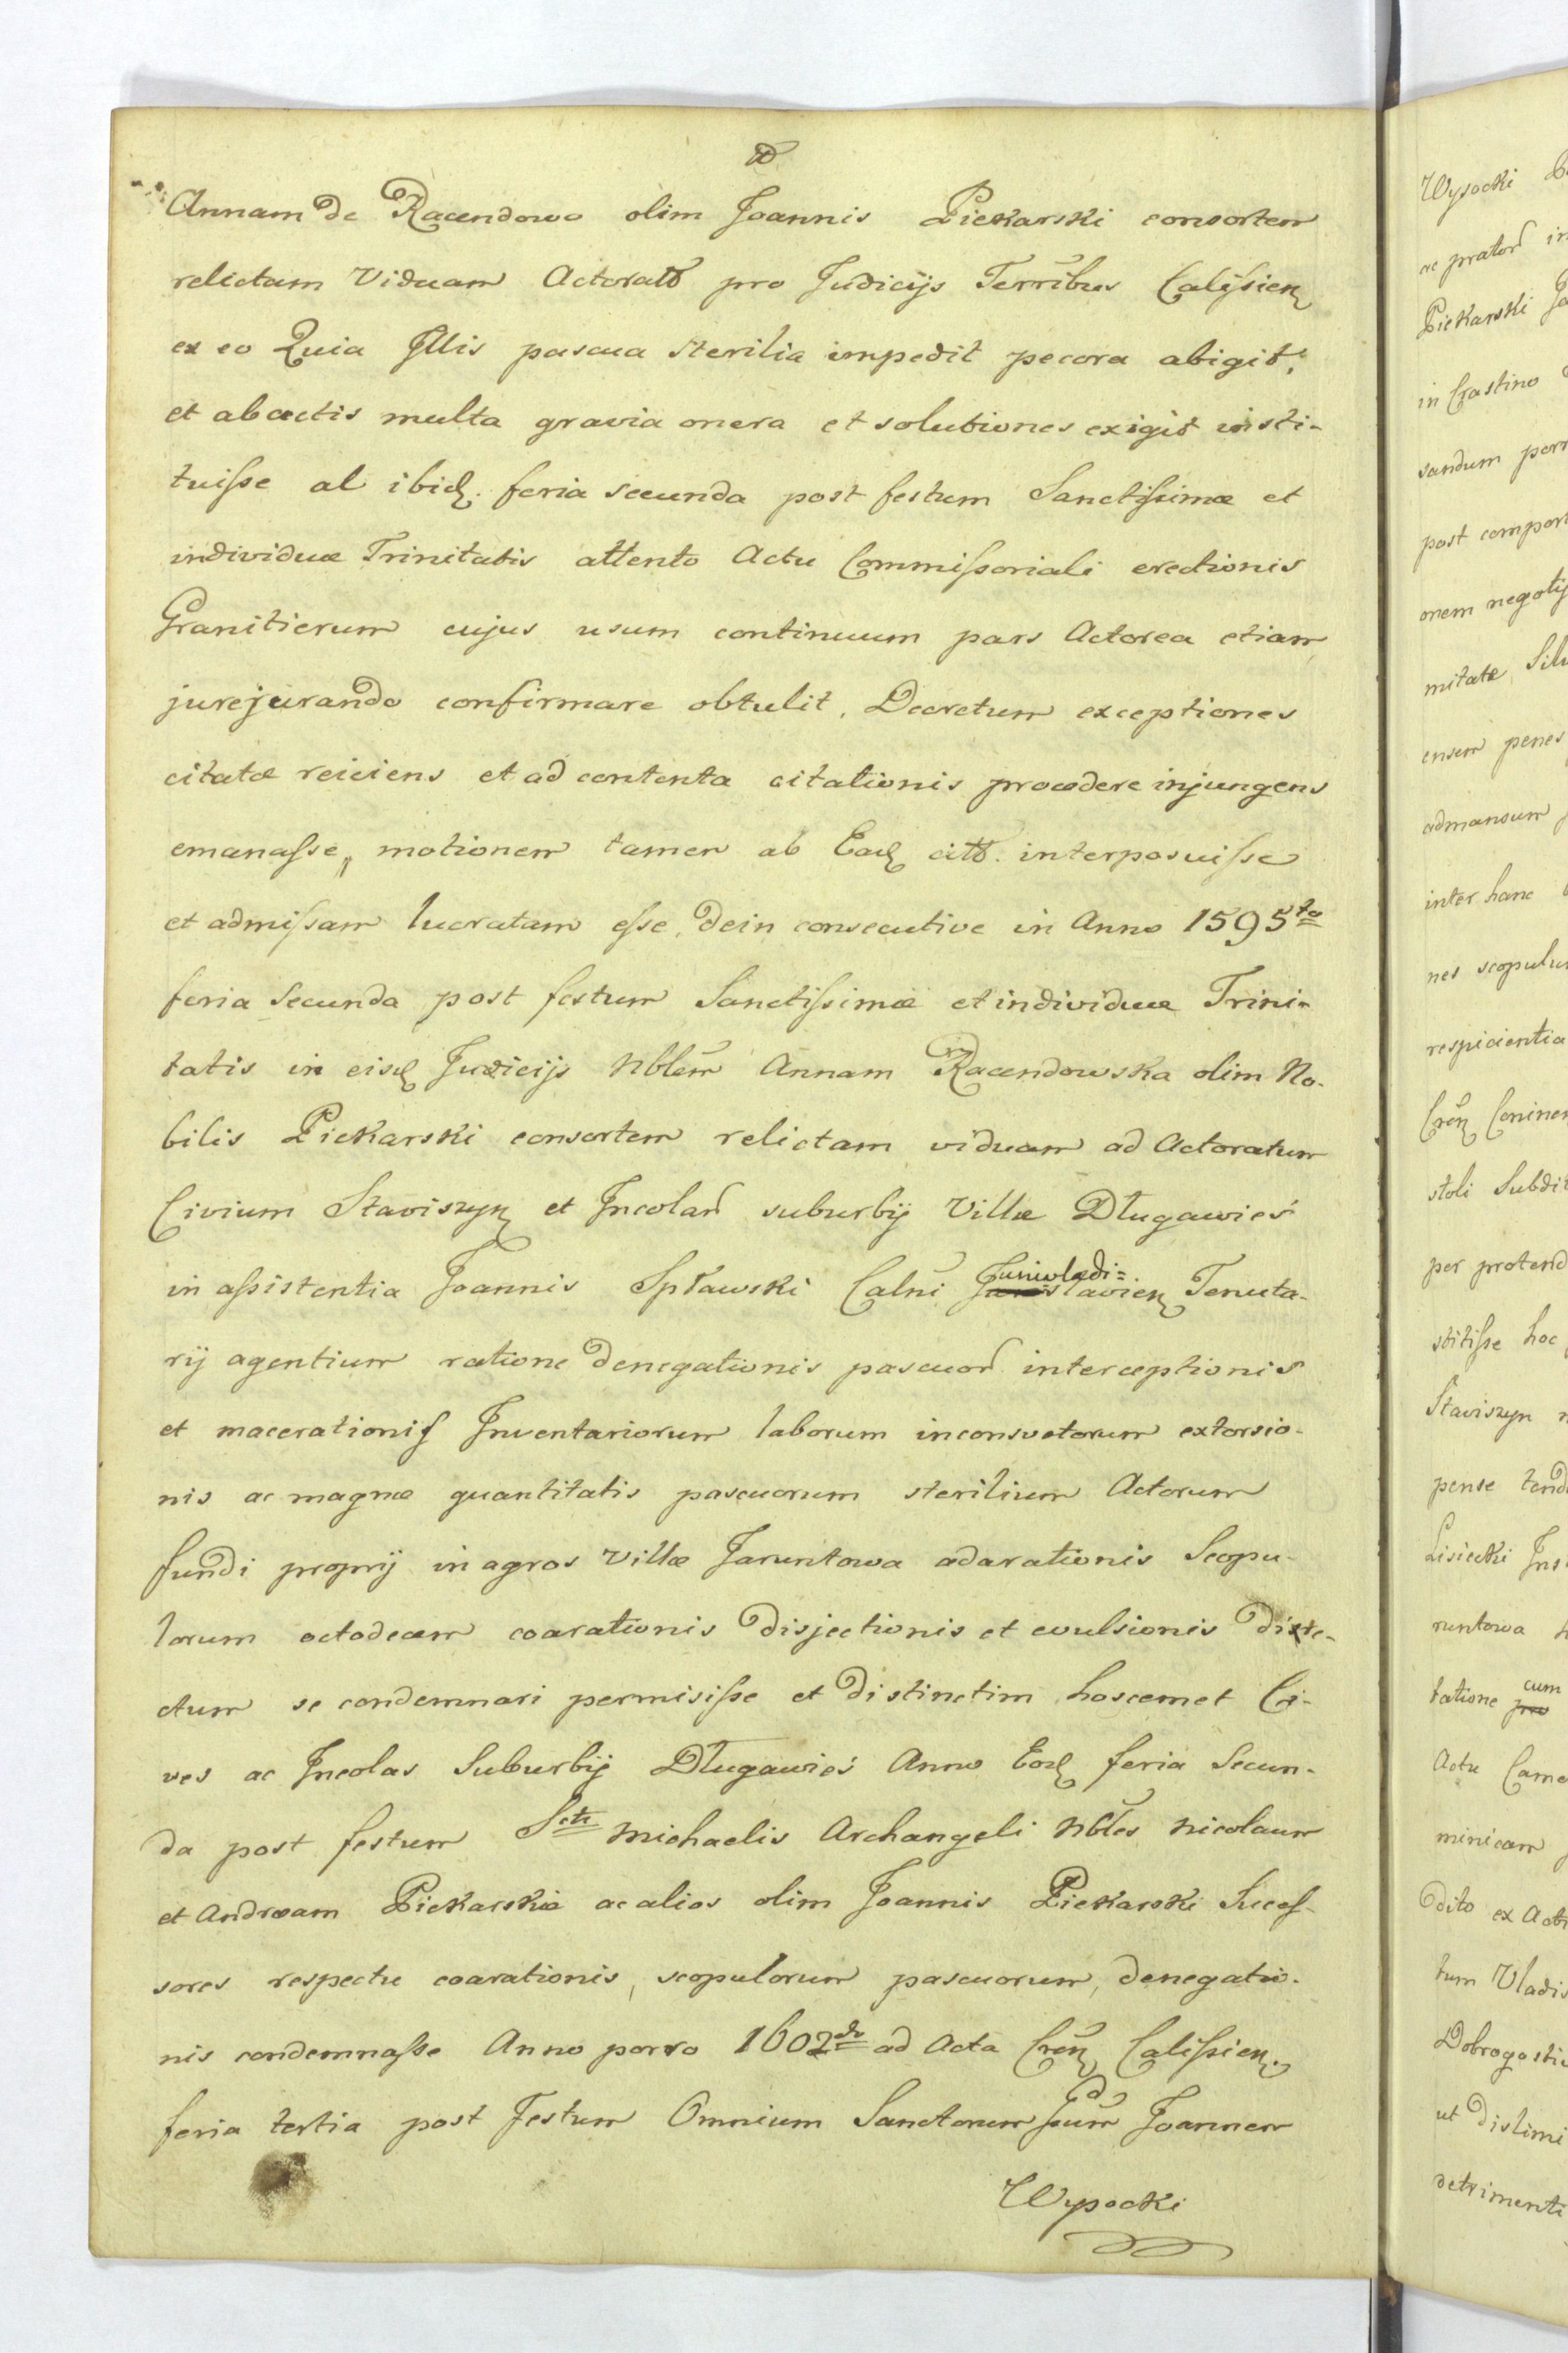 Annam de Racendowo olim Joannis Piekarski consortem
relictam Viduam Actoratũ pro Judicijs Terribus Calisien
ex eo Quia Illis pascua sterilia impedit pecora abigit,
et abactis multa gravia onera et solutiones exigit insti-
tuisse al ibid. feria secunda post festum Sanctissimæ et
individuæ Trinitatis attento Actu Commissoriali erectionis
Granitierum cujus usum continuum pars Actorea etiam
jurejurando confirmare obtulit, Decretum exceptiones
citatæ reiciens et ad contenta citationis procedere injungens
emanasse, motionem tamen ab Ead citt. interposuisse
et admissam lucratam esse, dein consecutive in Anno 1595to
feria Secunda post festum Sanctissimæ et individuæ Trini-
tatis in eisd Judicijs Nblem Annam Racendowska olim No-
bilis Piekarski consortem relictam viduam ad Actoratum
Civium Staviszyn et Incolar suburbij Villæ Długawies
in assistentia Joannis Spławski Calni Juniwladi= Jaroslavien Tenuta-
rij agentium ratione denegationis pascuor interceptionis
et macerationis Inventariorum laborum inconsvetorum extorsio-
nis ac magnæ quantitatis pascuorum sterilium Actorum
fundi proprij in agros Villæ Jaruntowa adarationis Scopu-
lorum octodecem coarationis disjectionis et evulsionis diste-
ctum se condemnari permisisse et distinctim hoscemet Ci-
ves ac Incolas Suburbij Długawies Anno Eod feria Secun-
da post festum Scti Michaelis Archangeli Nbles Nicolaum
et Andream Piekarskie ac alios olim Joannis Piekarski Succes-
sores respectu coarationis, scopulorum pascuorum, denegatio-
nis condemnasse Anno porro 1602do ad Acta Cren Calissien.
feria tertia post Festum Omnium Sanctorum Joannem
Wysocki
Wysocki
Piekarski
in Crastino
sandum
post
onem
mitate
ensem penes
admansum
inter hanc
nes
respicientia
stoli
per
stitisse hoc
Staviszyn
pense
Lisiecki
runtowa
tatione cum pro
Actu
minicam
dito ex
tum
ut
detrimenti